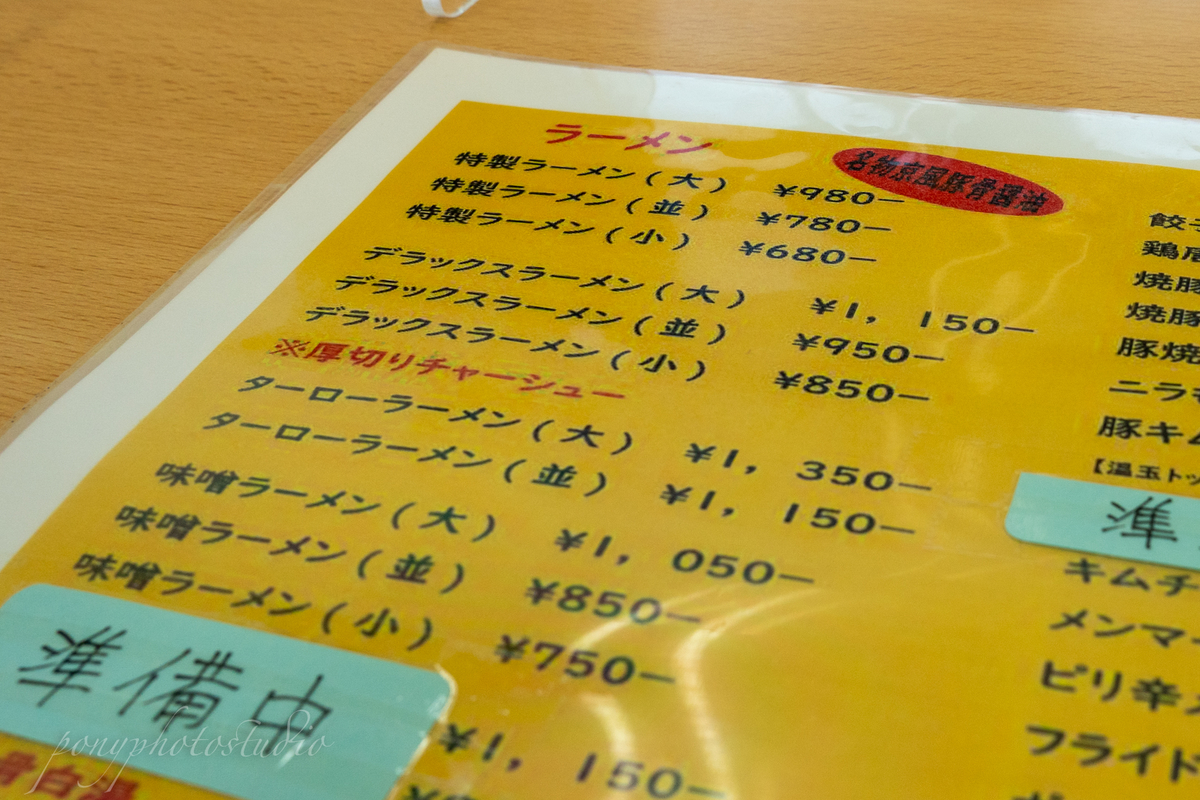 ラーメン
名物京風豚骨醤油
特製ラーメン(大) ¥980ー
特製ラーメン(並) ¥780ー
特製ラーメン(小) ¥680ー
デラックスラーメン(大) ¥1,150ー
デラックスラーメン(並) ¥950ー
デラックスラーメン(小) ¥850ー
※厚切りチャーシュー
ターローラーメン(大) ¥1,350ー
ターローラーメン(並) ¥1,150ー
味噌ラーメン(大) ¥1,050ー
味噌ラーメン(並) ¥850ー
味噌ラーメン(小) ¥750ー
準備中
¥1,150ー
骨白湯
餃子
鶏唐
焼豚
焼豚
豚焼
ニラモ
豚キム
【温玉トッ
準
キムチ
メンマ
ピリ辛
フライド
ponyphotostudio